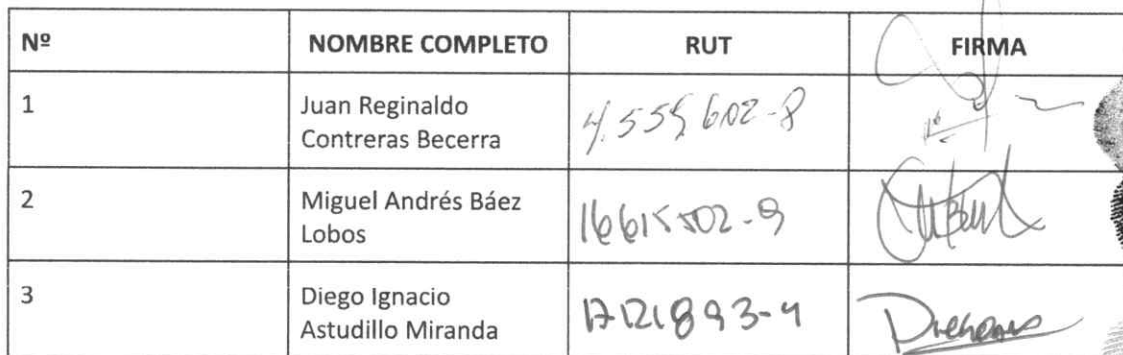 Nº NOMBRE COMPLETO RUT FIRMA
1 Juan Reginaldo
Contreras Becerra 4.555.602-8
2 Miguel Andrés Báez
Lobos 16615502-9
3 Diego Ignacio
Astudillo Miranda 17121893-4